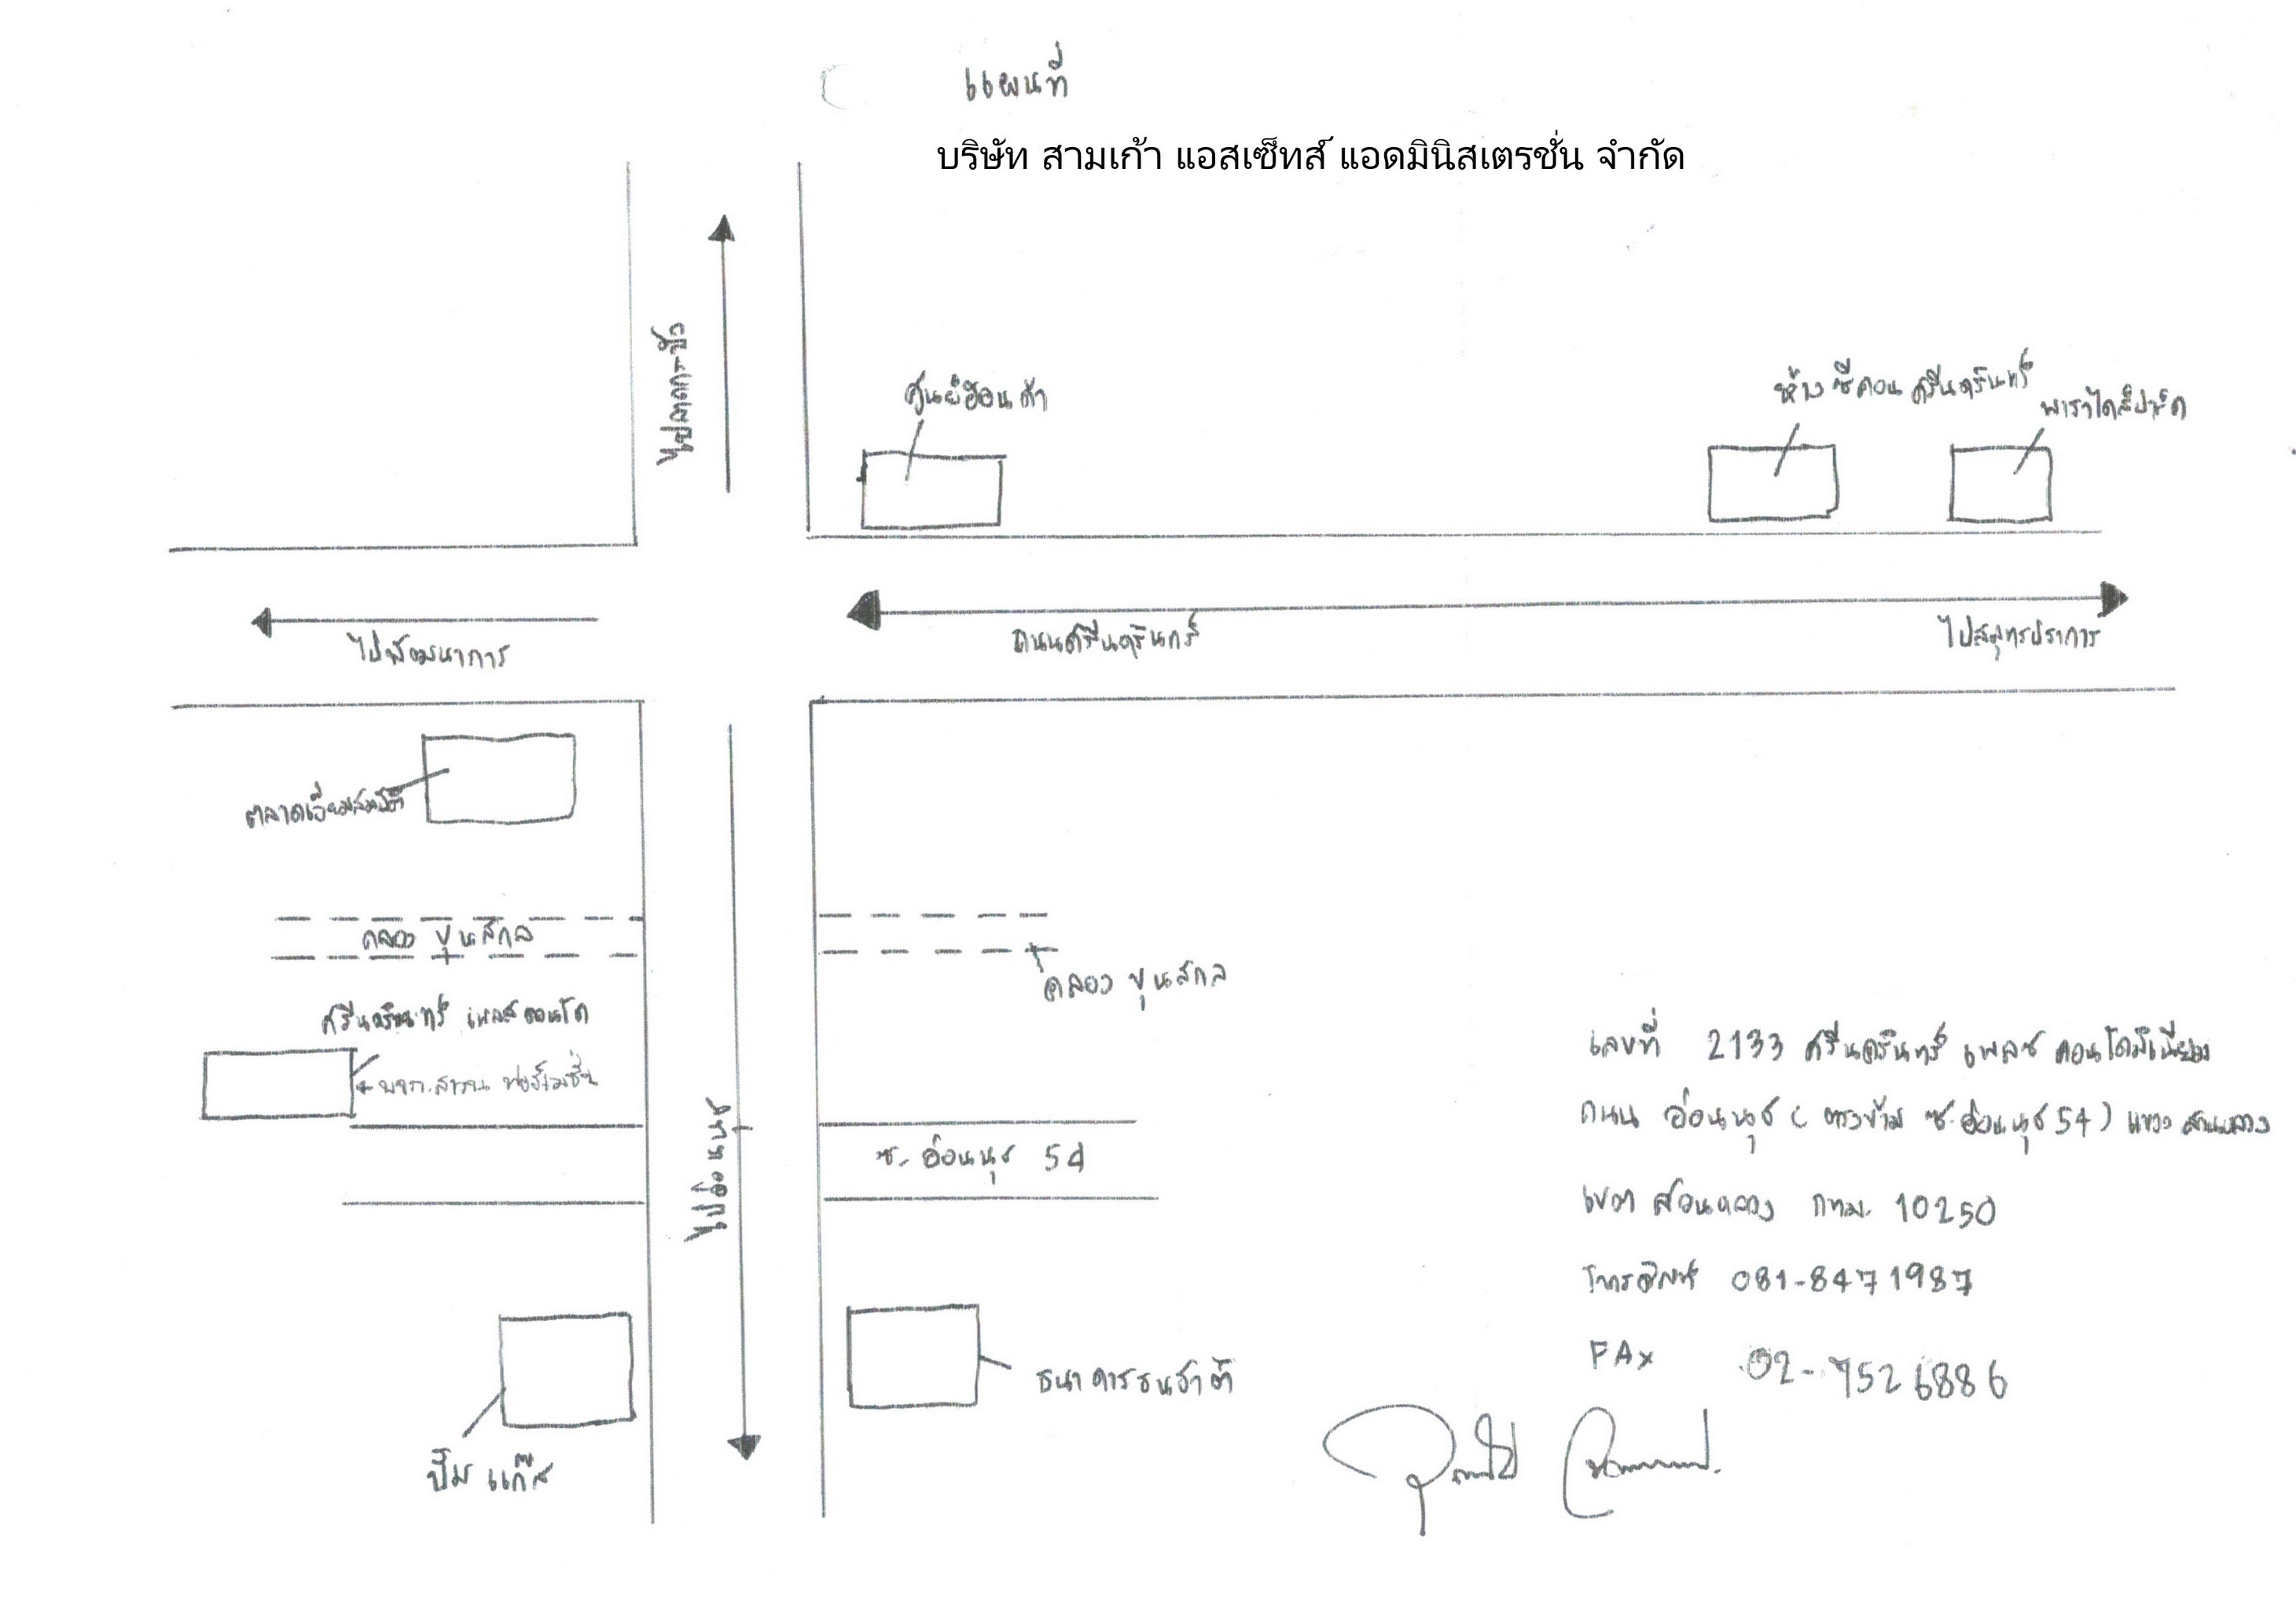 แผนที่
บริษัท สามเก้า แอสเซ็ทส์ แอดมินิสเตรชั่น จำกัด
ไปลาดกระบัง
ศูนย์ฮอนด้า
ห้าง ซีคอน ศรีนครินทร์
พาราไดส์ปาร์ค
ไปพัฒนาการ
ถนนศรีนครินทร์
ไปสมุทรปราการ
ตลาดเอี่ยมสมบัติ
คลอง ขุนสกล
คลอง ขุนสกล
ศรีนครินทร์ เพลส คอนโด
บจก.
ไปอ่อนนุช
ซ. อ่อนนุช 54
เลขที่ 2133 ศรีนครินทร์ เพลซ คอนโดมิเนียม
ถนน อ่อนนุช (ตรงข้าม ซ. อ่อนนุช 54) แขวง สวนหลวง
เขต สวนหลวง กทม. 10250
โทรศัพท์ 081-8471987
FAx 02-7526886
ธนาคารธนชาติ
ปั๊ม แก๊ส